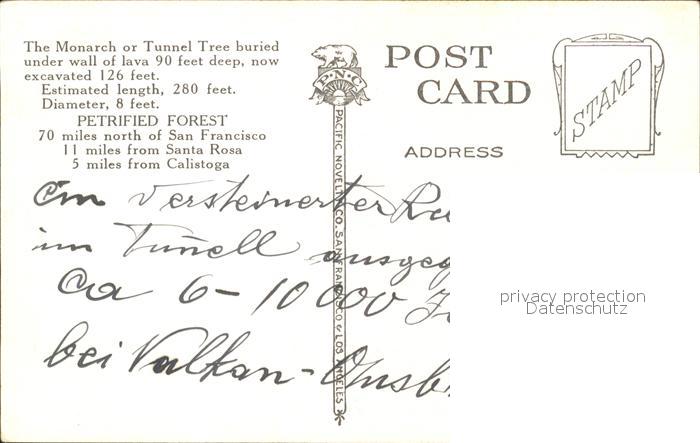 The Monarch or Tunnel Tree buried
under wall of lava 90 feet deep, now
excavated 126 feet.
Estimated length, 280 feet.
Diameter, 8 feet.
PETRIFIED FOREST
70 miles north of San Francisco
11 miles from Santa Rosa
5 miles from Calistoga
P.N.C.
PACIFIC NOVELTY CO. SAN FRANCISCO & LOS ANGELES
POST
CARD
ADDRESS
STAMP
Ein versteinerter
im Tunell
Ca 6-10000
bei Vulkan-
privacy protection
Datenschutz